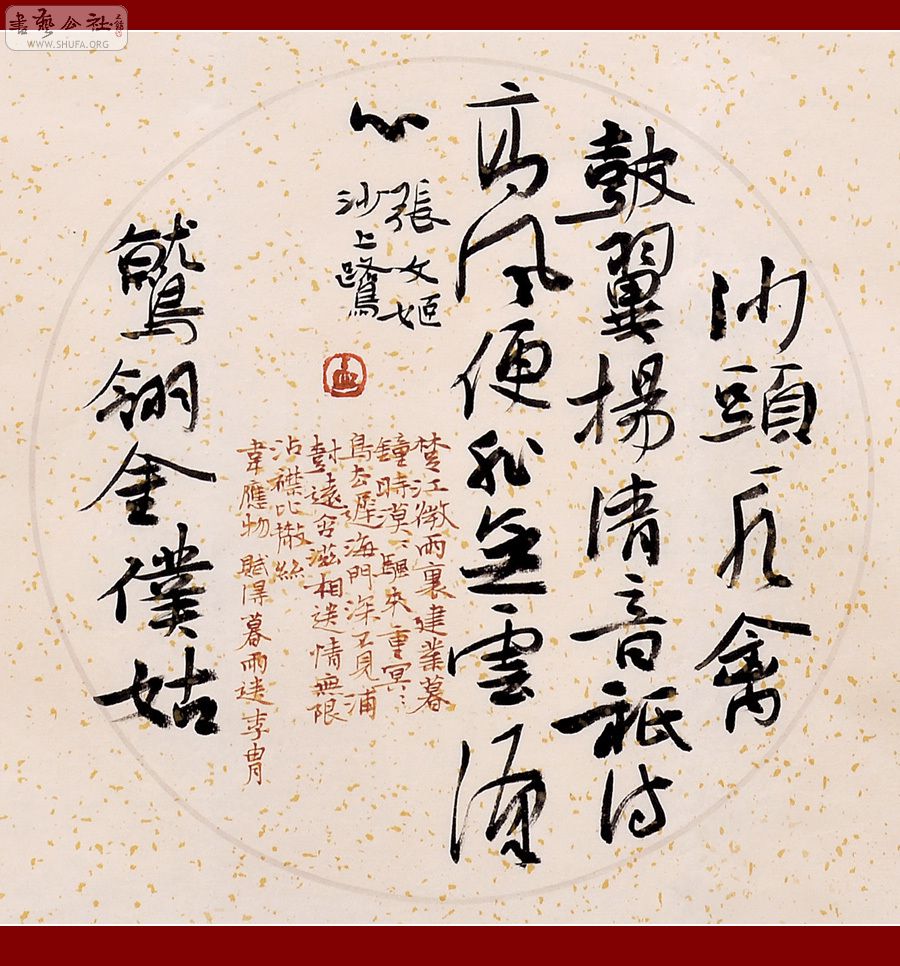 書藝公社
WWW.SHUFA.ORG
沙頭一水禽
鼓翼揚清音祇待
高風便非無雲漢
心
張文姬
沙上鷺
楚江微雨裏建業暮
鐘時漠〻颿来重冥〻
鳥去遲海門深不見浦
樹遠含滋相送情無限
沾襟比散絲
韋應物 賦得暮雨送李冑
鷲翎金僕姑